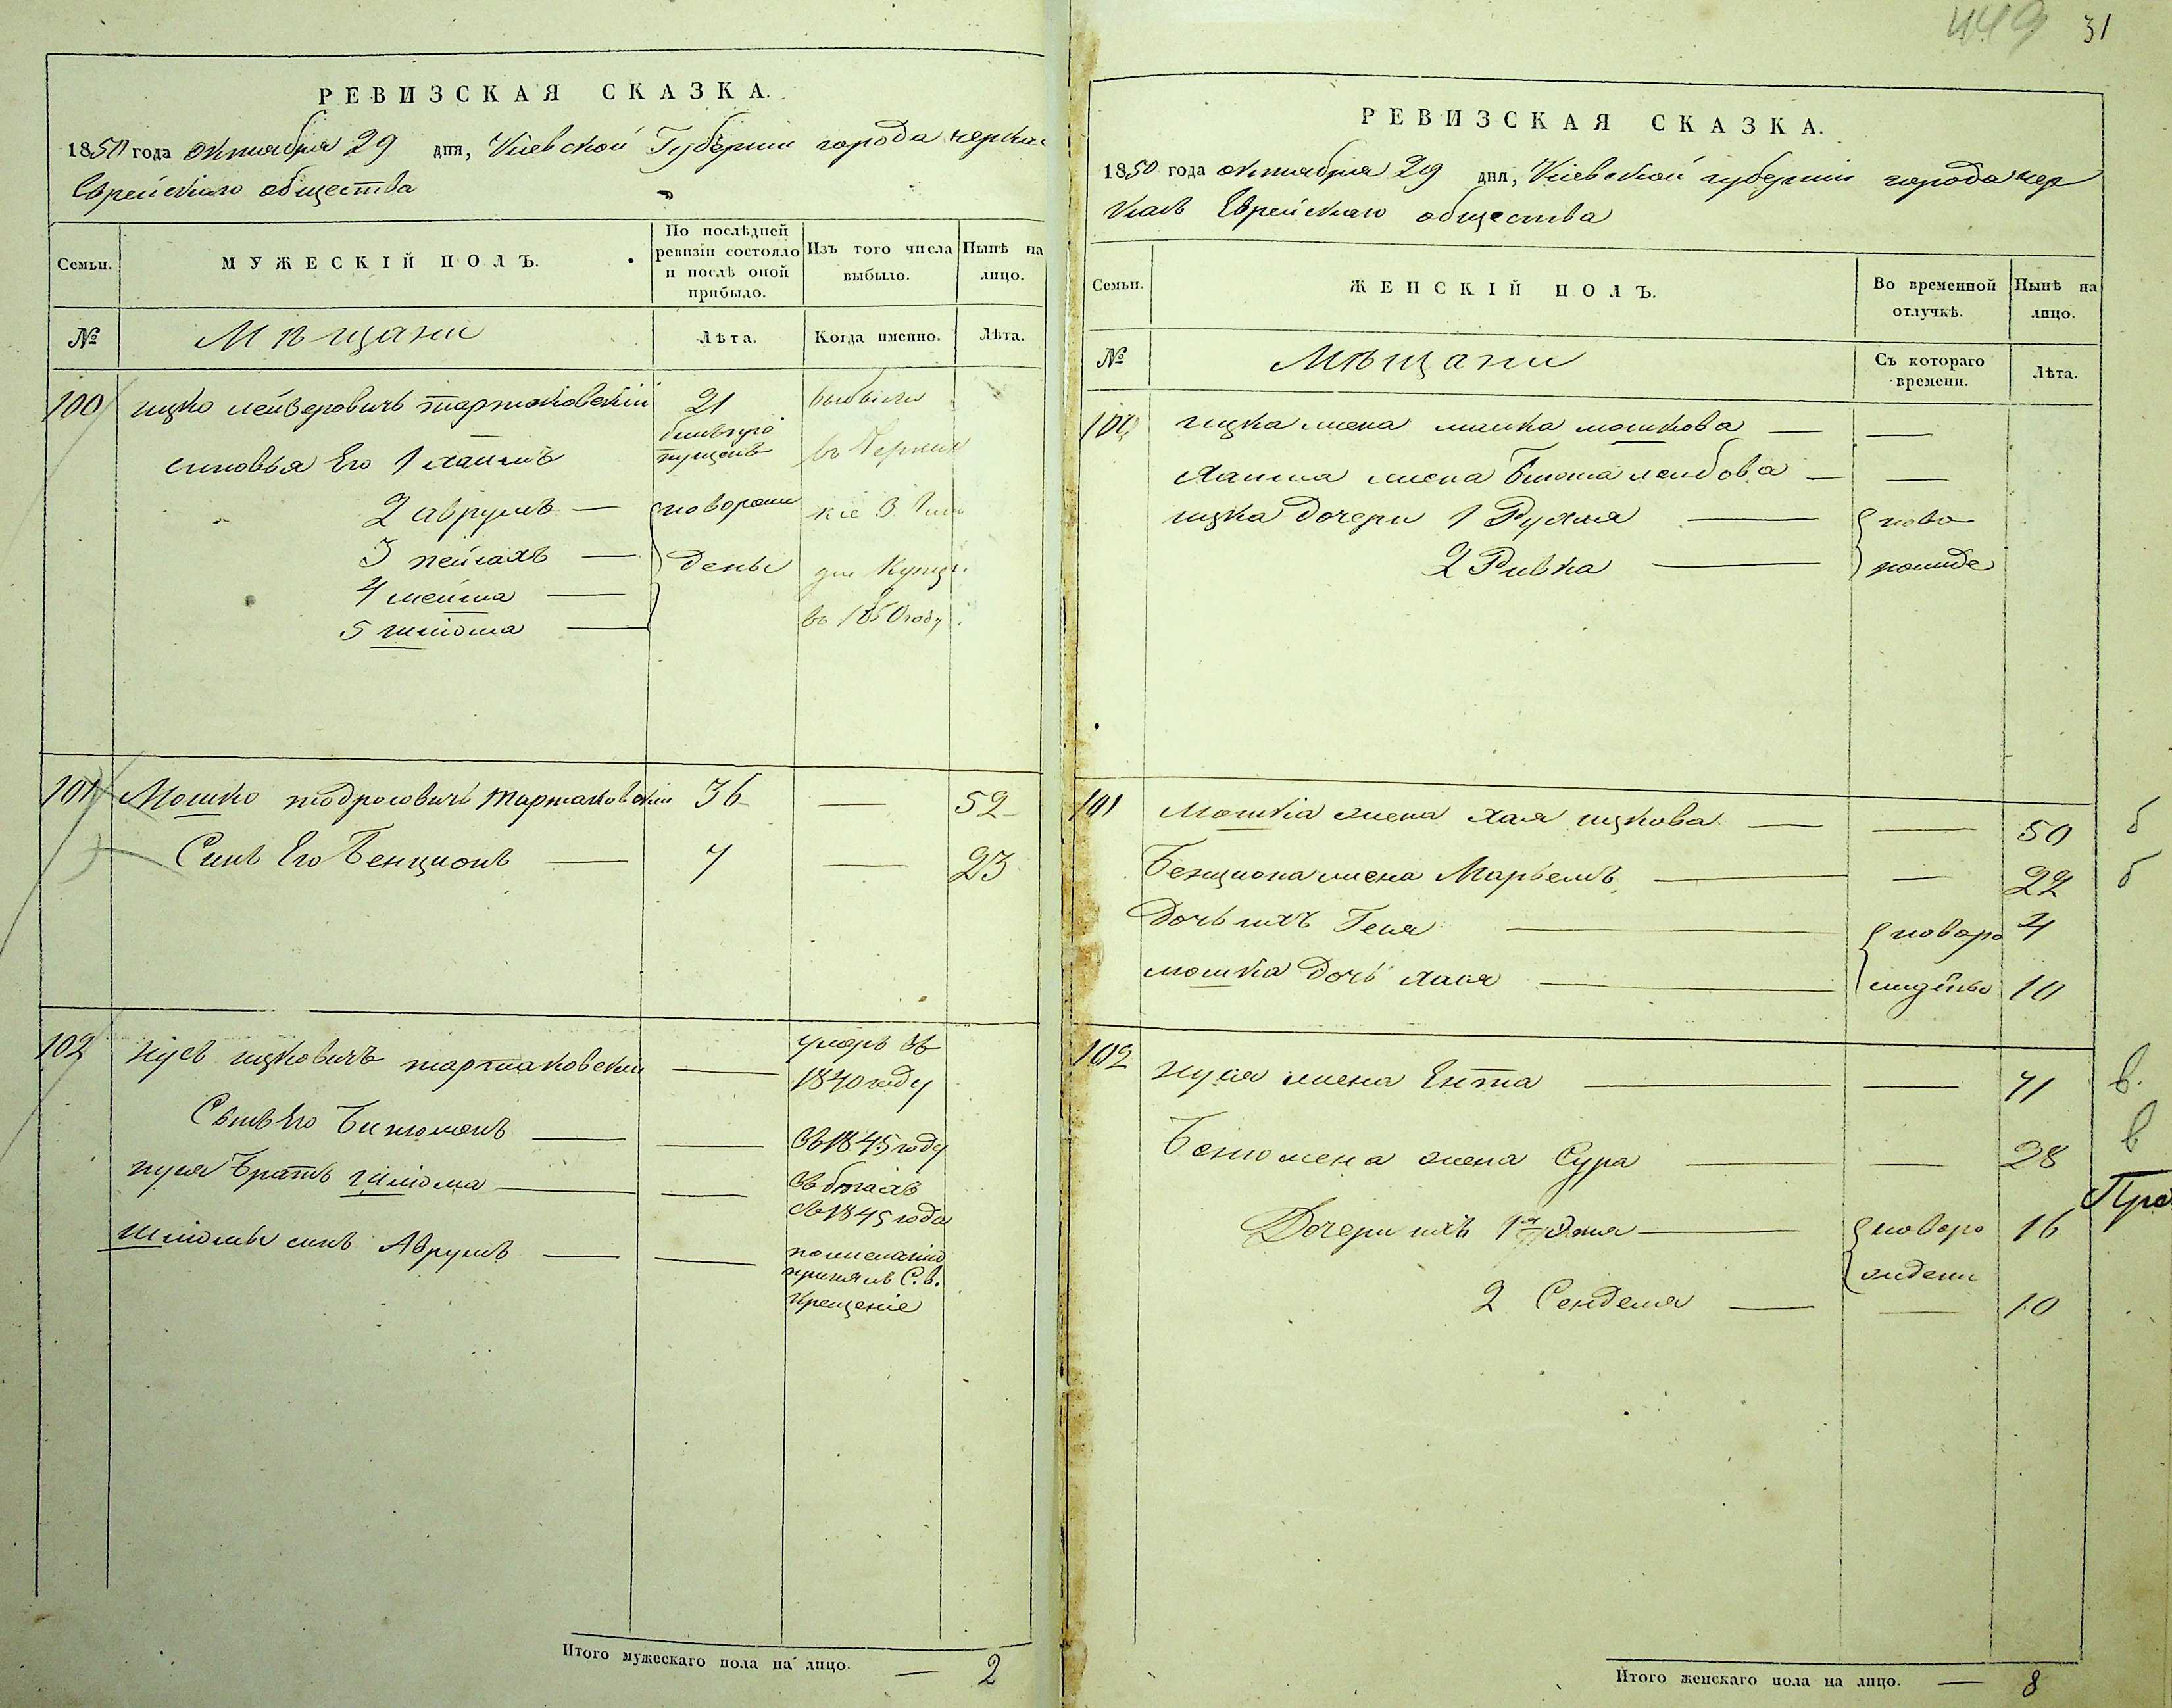 РЕВИЗСКАЯ СКАЗКА.
1850 года октября 29 дня, Киевской Губернии города Черкас
Еврейскаго общества
Семьи.
МУЖЕСКІЙ ПОЛЪ.
По послѣдней ревизіи состояло и послѣ оной прибыло.
Изъ того числа выбыло.
Нынѣ на лицо.
№
Мѣщани
Лѣта.
Когда именно.
Лѣта.
100 ицко лейзеровичъ тартаковскій 21 выбыли
синовья Его 1 хаимъ билъ про пущенъ въ Черкас
2 аврумъ — новорож кіе 3 Гил
3 пейсахъ — дены діи Купц.
4 мейша —
5 шліома — въ 1850 году.
101 Мошко тодросовичъ тартаковскій 36 — 52
Синъ Его Бенционъ — 7 — 23
102 нусъ ицковичъ тартаковскій — умеръ въ 1840 году
Сынъ Его Бинюменъ — — въ 1845 году
нуся братъ шліома — — въ бегахъ съ 1845 года
Шліомы синъ Аврумъ — — по желанію принялъ С.в. крещеніе
Итого мужескаго пола на лицо. — 2
449 31
РЕВИЗСКАЯ СКАЗКА.
1850 года октября 29 дня, Киевской губернии города Чер
касъ Еврейскаго общества
Семьи.
ЖЕНСКІЙ ПОЛЪ.
Во временной отлучкѣ.
Нынѣ на лицо.
№
Мѣщани
Съ котораго времени.
Лѣта.
100 ицка жена малка мошкова — —
хаима жена лейбова — —
ицка дочери 1 Рухля — ново
2 Ривка — рожде
101 Мошка жена хая ицкова — — 50 б
Бенциона жена Марьемъ — — 22 б
Дочь ихъ Геня — новоро 4
мошка дочь хася — 10
102 нуся жена Ента — — 71 в.
Бенюмена жена Сура — — 28 в
Дочери ихъ 1я — новоро 16
ждени
2 Сенделя — — 10
Итого женскаго пола на лицо. — 8